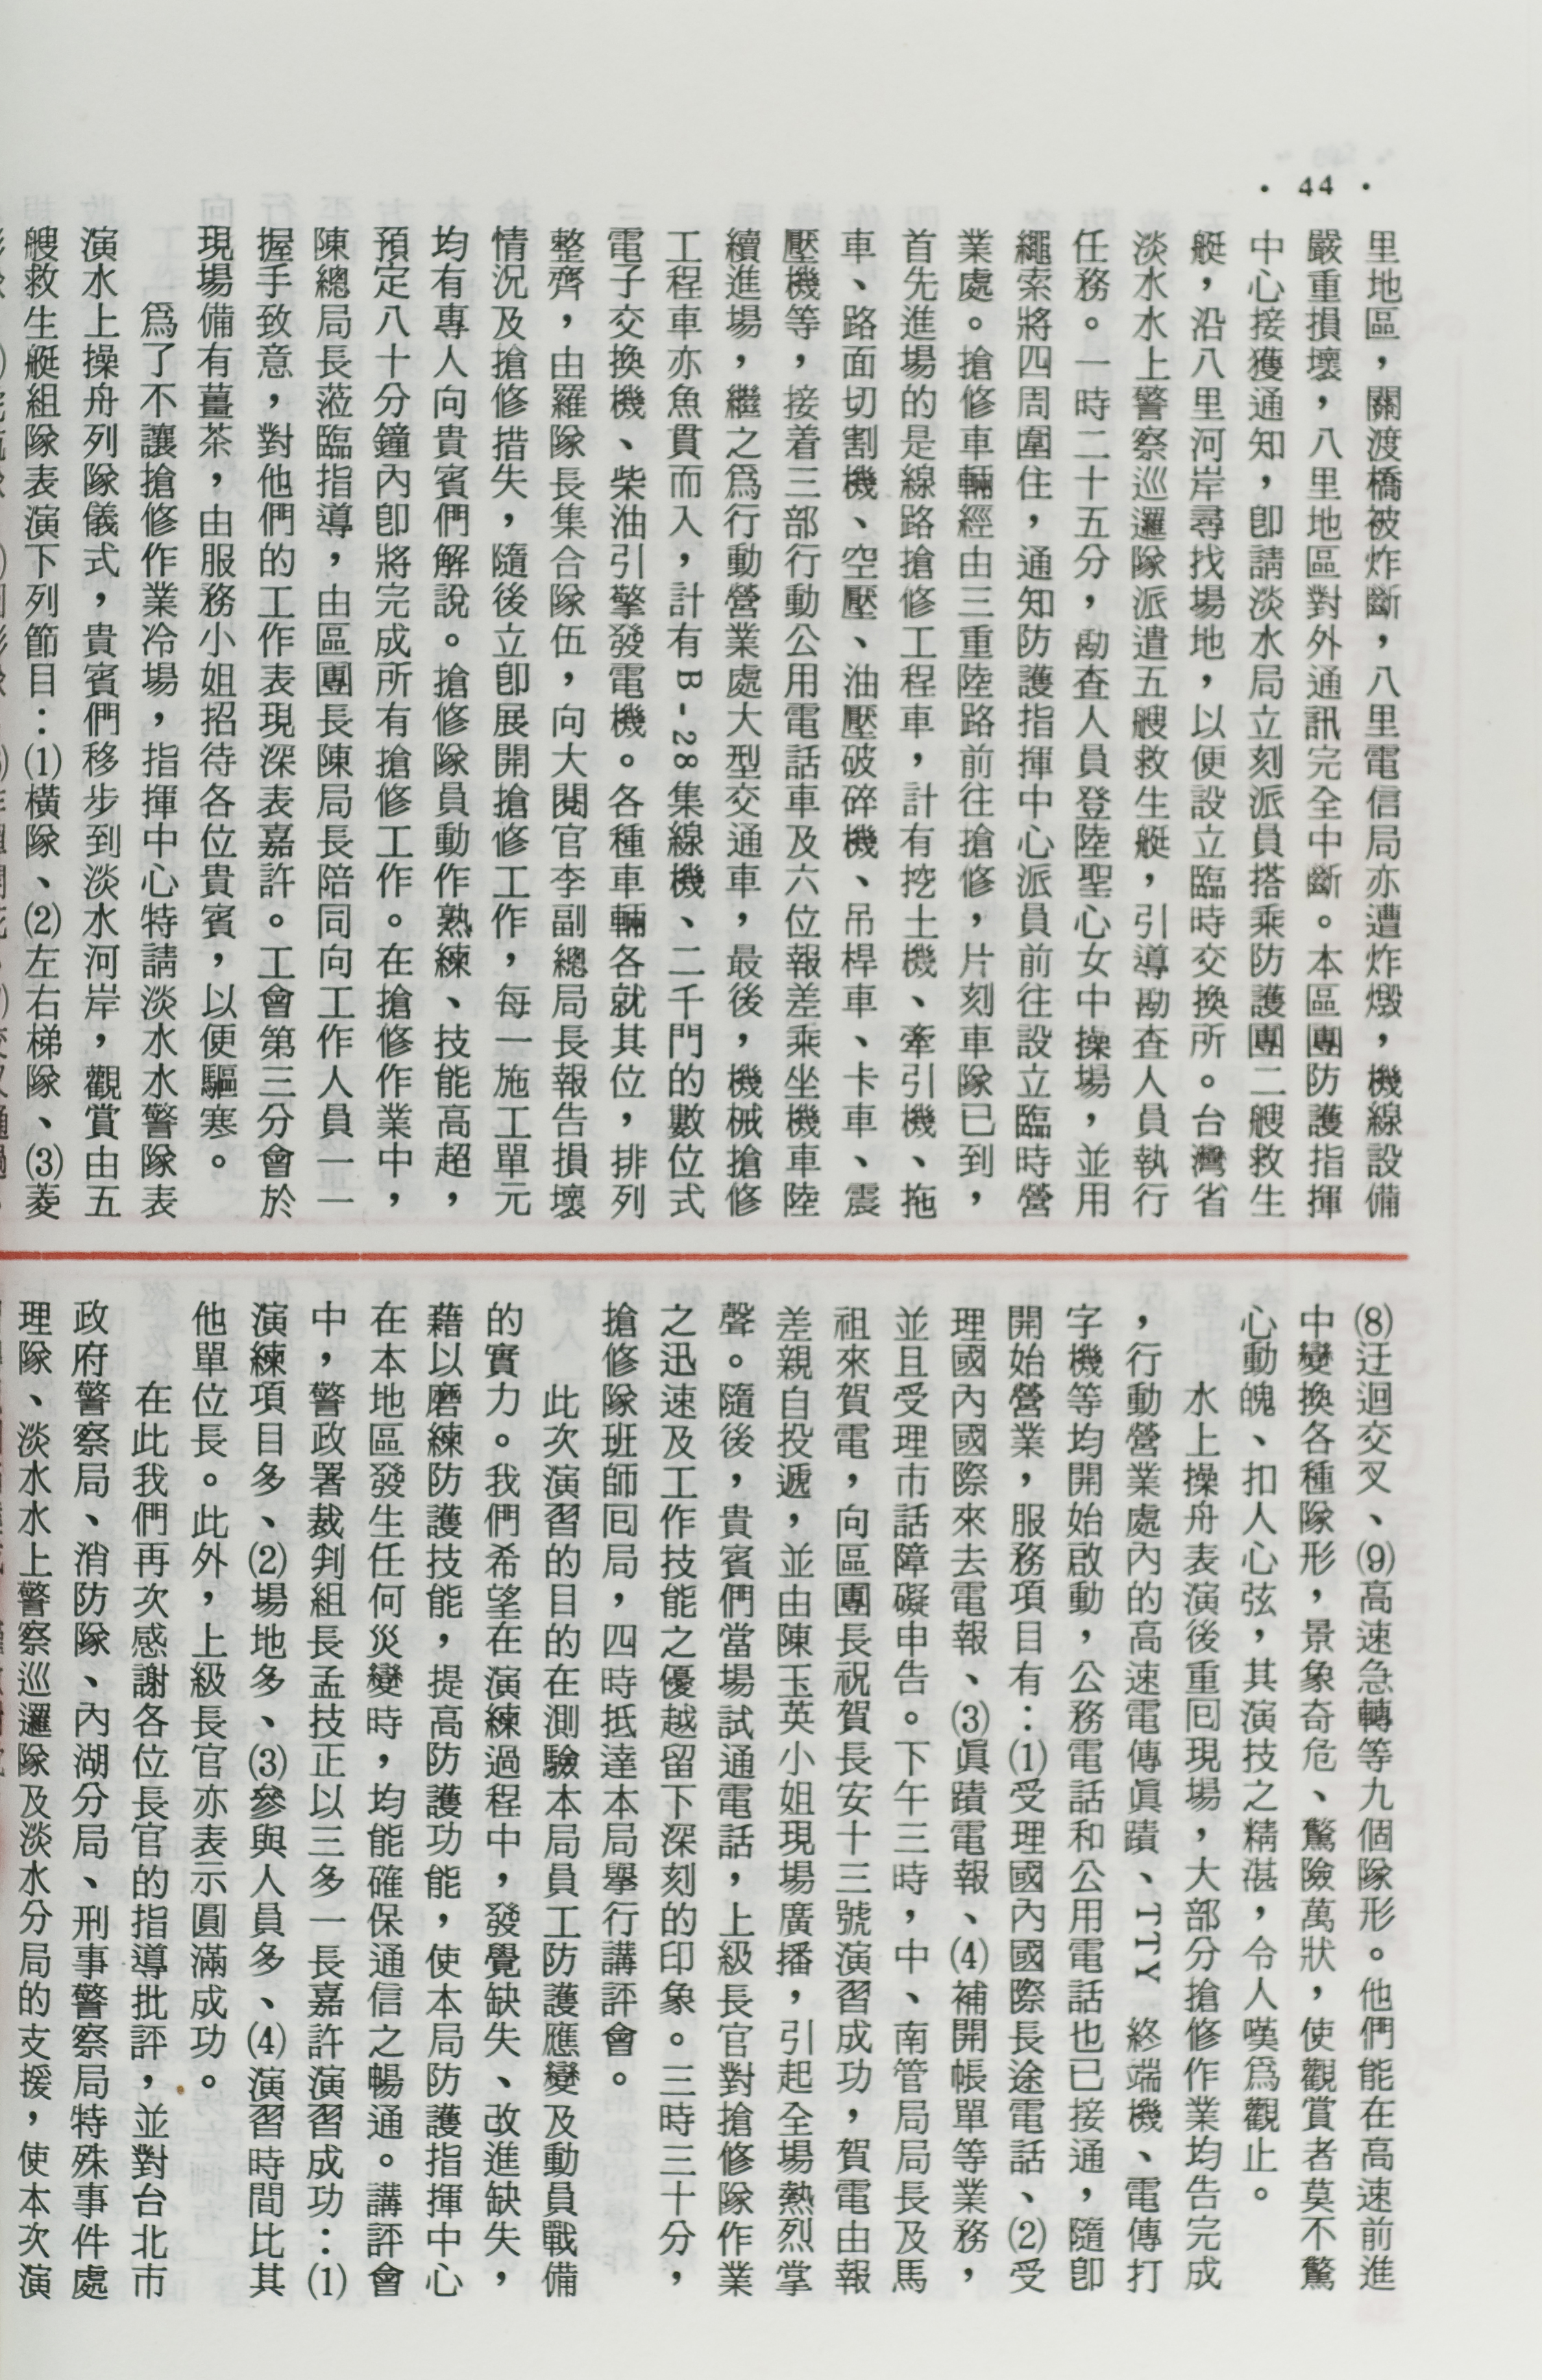 • 44 •
里地區，關渡橋被炸斷，八里電信局亦遭炸燬，機線設備
嚴重損壞，八里地區對外通訊完全中斷。本區團防護指揮
中心接獲通知，卽請淡水局立刻派員搭乘防護團二艘救生
艇，沿八里河岸尋找場地，以便設立臨時交換所。台灣省
淡水水上警察巡邏隊派遣五艘救生艇，引導勘查人員執行
任務。一時二十五分，勘查人員登陸聖心女中操場，並用
繩索將四周圍住，通知防護指揮中心派員前往設立臨時營
業處。搶修車輛經由三重陸路前往搶修，片刻車隊已到，
首先進場的是線路搶修工程車，計有挖土機、牽引機、拖
車、路面切割機、空壓、油壓破碎機、吊桿車、卡車、震
壓機等，接着三部行動公用電話車及六位報差乘坐機車陸
續進場，繼之爲行動營業處大型交通車，最後，機械搶修
工程車亦魚貫而入，計有B-28集線機、二千門的數位式
電子交換機、柴油引擎發電機。各種車輛各就其位，排列
整齊，由羅隊長集合隊伍，向大閱官李副總局長報告損壞
情況及搶修措失，隨後立卽展開搶修工作，每一施工單元
均有專人向貴賓們解說。搶修隊員動作熟練、技能高超，
預定八十分鐘內卽將完成所有搶修工作。在搶修作業中，
陳總局長蒞臨指導，由區團長陳局長陪同向工作人員一一
握手致意，對他們的工作表現深表嘉許。工會第三分會於
現場備有薑茶，由服務小姐招待各位貴賓，以便驅寒。
爲了不讓搶修作業冷場，指揮中心特請淡水水警隊表
演水上操舟列隊儀式，貴賓們移步到淡水河岸，觀賞由五
艘救生艇組隊表演下列節目：(1)橫隊、(2)左右梯隊、(3)菱
(8)迂迴交叉、(9)高速急轉等九個隊形。他們能在高速前進
中變換各種隊形，景象奇危、驚險萬狀，使觀賞者莫不驚
心動魄、扣人心弦，其演技之精湛，令人嘆爲觀止。
水上操舟表演後重囘現場，大部分搶修作業均告完成
，行動營業處內的高速電傳眞蹟、TTY 終端機、電傳打
字機等均開始啟動，公務電話和公用電話也已接通，隨卽
開始營業，服務項目有：(1)受理國內國際長途電話、(2)受
理國內國際來去電報、(3)眞蹟電報、(4)補開帳單等業務，
並且受理市話障礙申告。下午三時，中、南管局局長及馬
祖來賀電，向區團長祝賀長安十三號演習成功，賀電由報
差親自投遞，並由陳玉英小姐現場廣播，引起全場熱烈掌
聲。隨後，貴賓們當場試通電話，上級長官對搶修隊作業
之迅速及工作技能之優越留下深刻的印象。三時三十分，
搶修隊班師囘局，四時抵達本局舉行講評會。
此次演習的目的在測驗本局員工防護應變及動員戰備
的實力。我們希望在演練過程中，發覺缺失、改進缺失，
藉以磨練防護技能，提高防護功能，使本局防護指揮中心
在本地區發生任何災變時，均能確保通信之暢通。講評會
中，警政署裁判組長孟技正以三多一長嘉許演習成功：(1)
演練項目多、(2)場地多、(3)參與人員多、(4)演習時間比其
他單位長。此外，上級長官亦表示圓滿成功。
在此我們再次感謝各位長官的指導批評，並對台北市
政府警察局、消防隊、內湖分局、刑事警察局特殊事件處
理隊、淡水水上警察巡邏隊及淡水分局的支援，使本次演